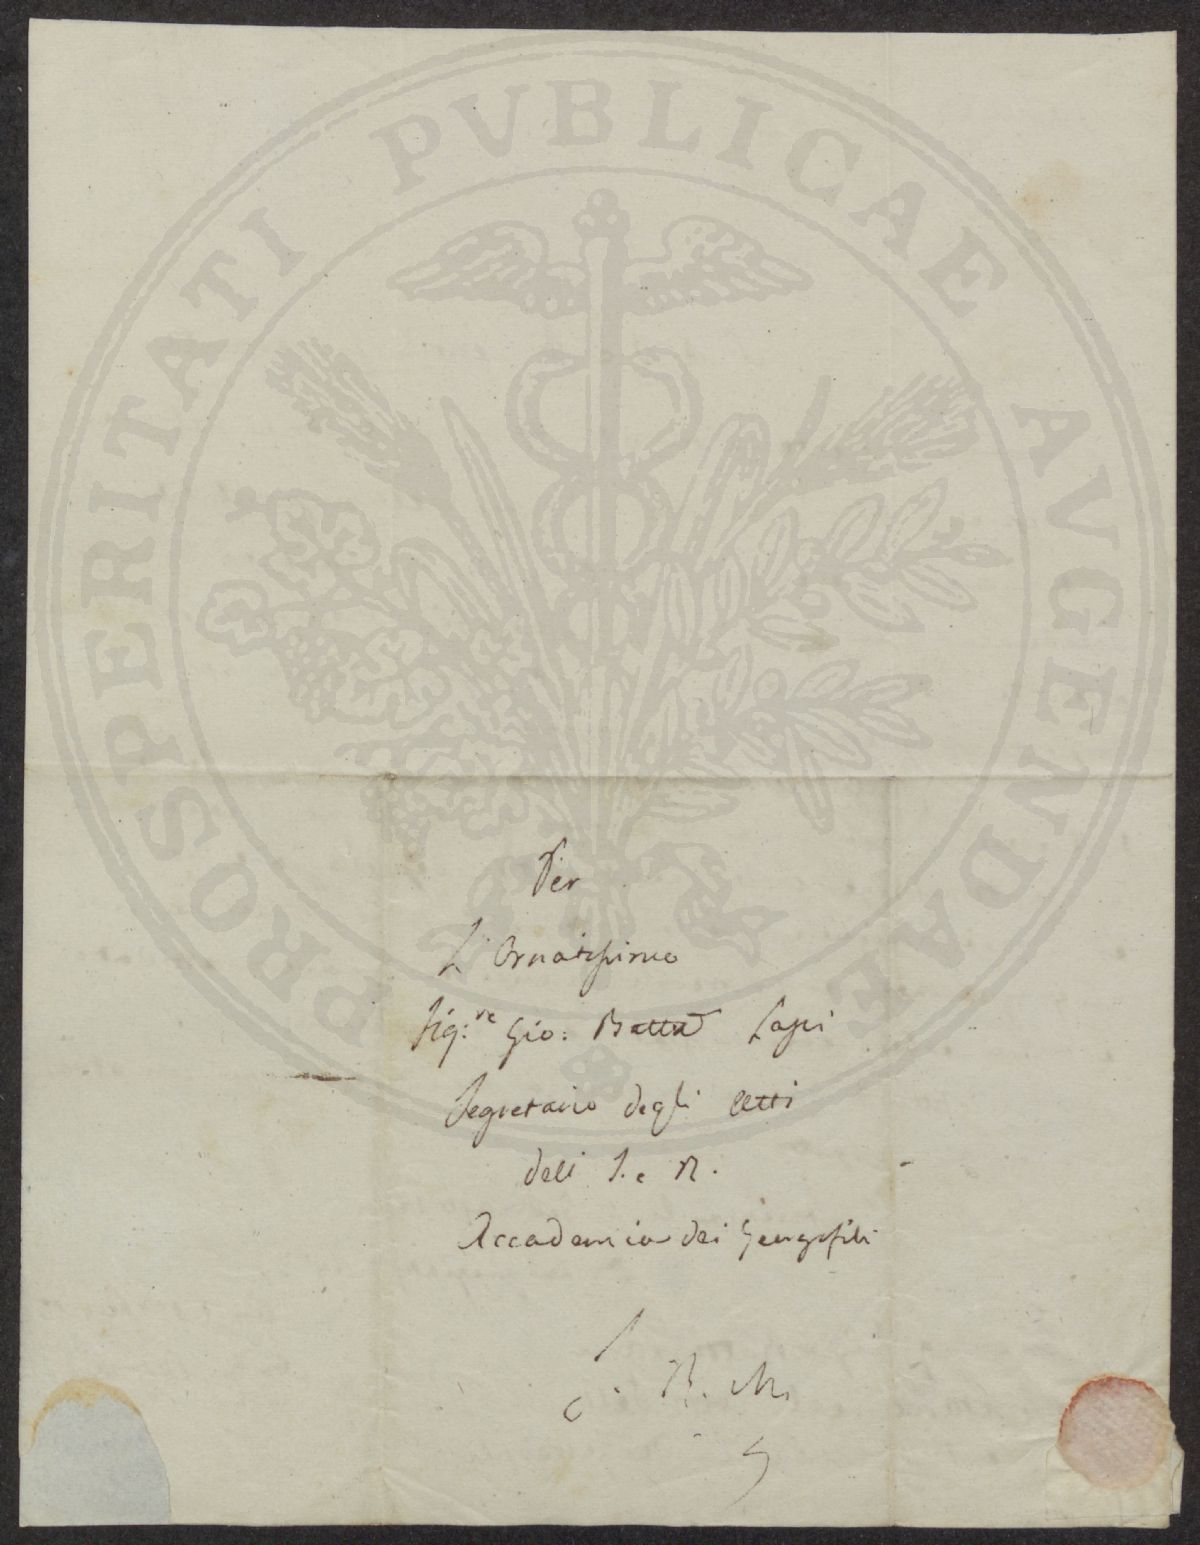 PROSPERITATI PVBLICAE AVGENDAE
Per
L'Ornatissimo
Sig:re Gio: Batta Lapi
Segretario degli Atti
dell I. e R.
Accademia dei Georgofili